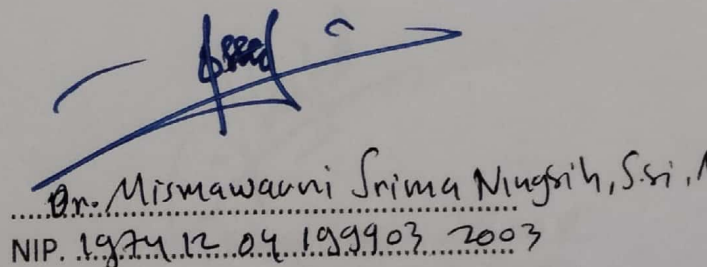 Dr. Mismawarni Srima Ningsih, S.Si, M
NIP. 19741204 199903 2003